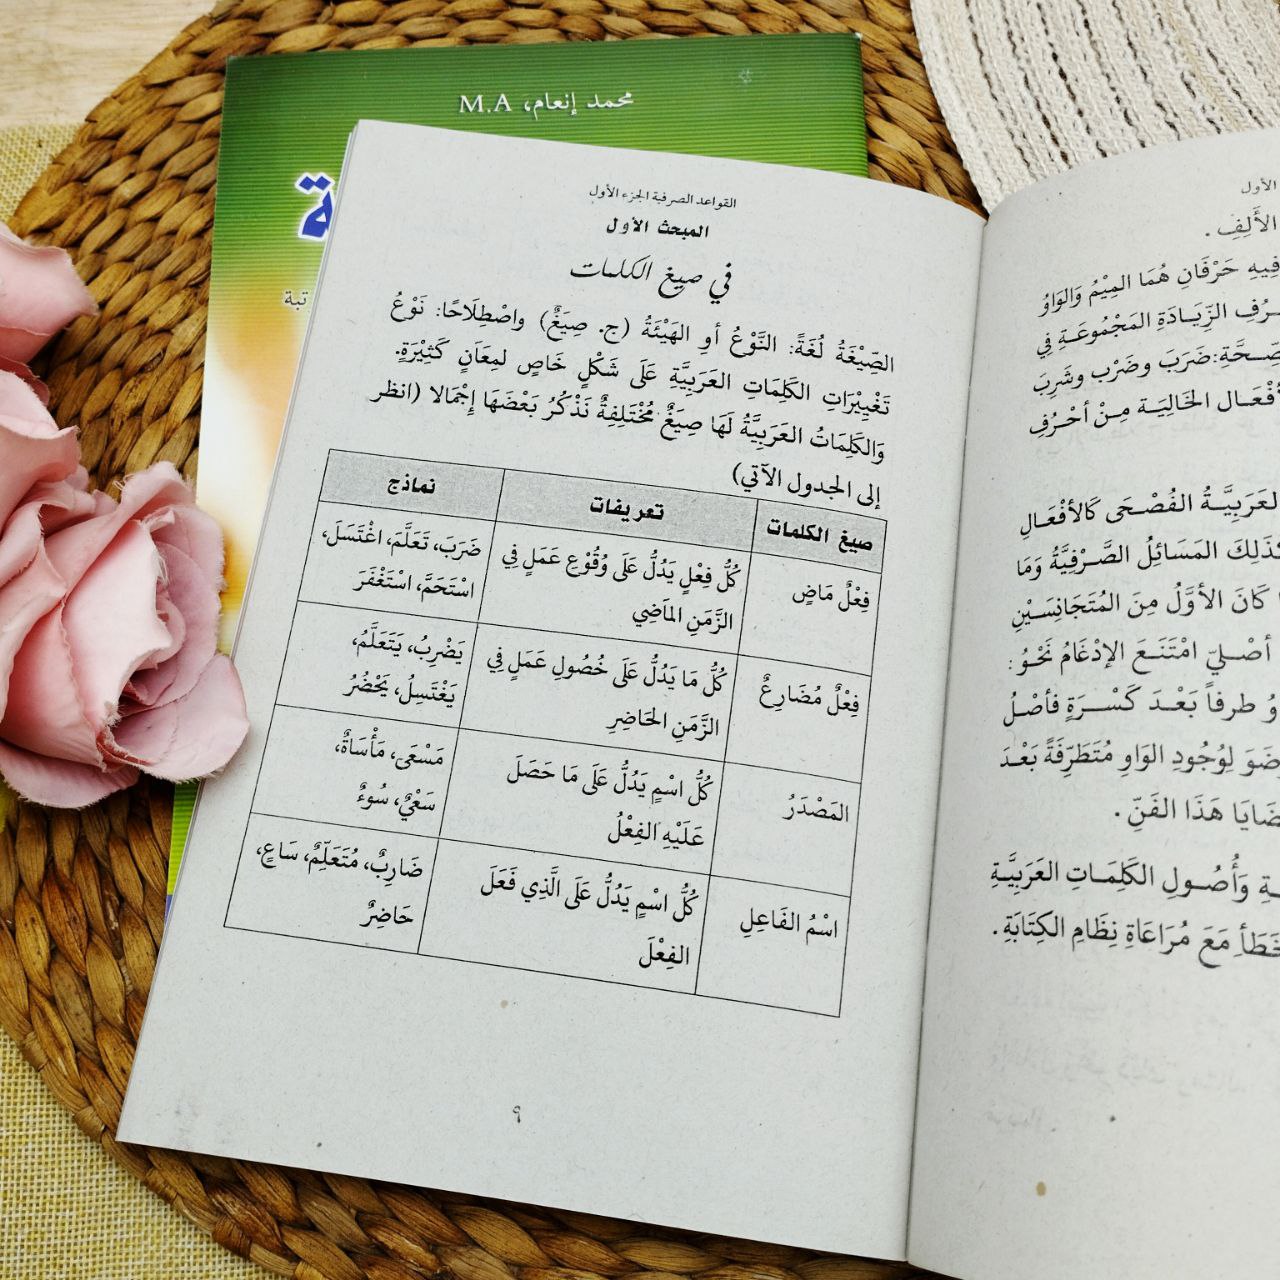 محمد إنعام، M.A
ة
القواعد الصرفية الجزء الأول
المبحث الأول
في صيغ الكلمات
الصِّيْغَةُ لُغَةً: النَّوْعُ أوِ الهَيْئَةُ (ج. صِيَغٌ) واصْطِلَاحًا: نَوْعُ
تَغْيِيْرَاتِ الكَلِمَاتِ العَرَبِيَّةِ عَلَى شَكْلٍ خَاصٍ لمِعَانٍ كَثِيْرَةٍ.
وَالكَلِمَاتُ العَرَبِيَّةُ لَهَا صِيَغٌ مُخْتَلِفَةٌ نَذْكُرُ بَعْضَهَا إِجْمَالا (انظر
إلى الجدول الآتي)
صيغ الكلمات تعريفات نماذج
فِعْلٌ مَاضٍ كُلُّ فِعْلٍ يَدُلُّ عَلَى وُقُوْعِ عَمَلٍ فِي ضَرَبَ، تَعَلَّمَ، اغْتَسَلَ،
الزَّمَنِ المَاضِي اسْتَحَمَّ، اسْتَغْفَرَ
فِعْلٌ مُضَارِعٌ كُلُّ مَا يَدُلُّ عَلَى حُصُولِ عَمَلٍ فِي يَضْرِبُ، يَتَعَلَّمُ،
الزَّمَنِ الحَاضِرِ يَغْتَسِلُ، يَحْضُرُ
المَصْدَرُ كُلُّ اسْمٍ يَدُلُّ عَلَى مَا حَصَلَ مَسْعَى، مَأْسَاةٌ،
عَلَيْهِ الفِعْلُ سَعْيٌ، سُوءٌ
اسْمُ الفَاعِلِ كُلُّ اسْمٍ يَدُلُّ عَلَى الَّذِي فَعَلَ ضَارِبٌ، مُتَعَلِّمٌ، سَاعٍ،
الفِعْلَ حَاضِرٌ
٩
الأول
الأَلِفِ .
فِيهِ حَرْفَانِ هُمَا المِيْمُ وَالوَاوُ
الزِّيَادَةِ المَجْمُوعَةِ فِي
ضَرَبَ وضَرْب وشَرِبَ
الخَالِيَة مِنْ أحْرُفِ
العَرَبِيَّةُ الفُصْحَى كَالأفْعَالِ
كَذَلِكَ المَسَائِلُ الصَّرْفِيَّةُ وَمَا
كَانَ الأوَّلُ مِنَ المُتَجَانِسَيْنِ
أصْلِيّ امْتَنَعَ الإدْغَامُ نَحْوُ:
طرفاً بَعْدَ كَسْرَةٍ فأصْلُ
لِوُجُودِ الوَاوِ مُتَطَرِّفَةً بَعْدَ
هَذَا الفَنِّ .
وَأُصُولِ الكَلِمَاتِ العَرَبِيَّةِ
مَعَ مُرَاعَاةِ نِظَامِ الكِتَابَةِ .